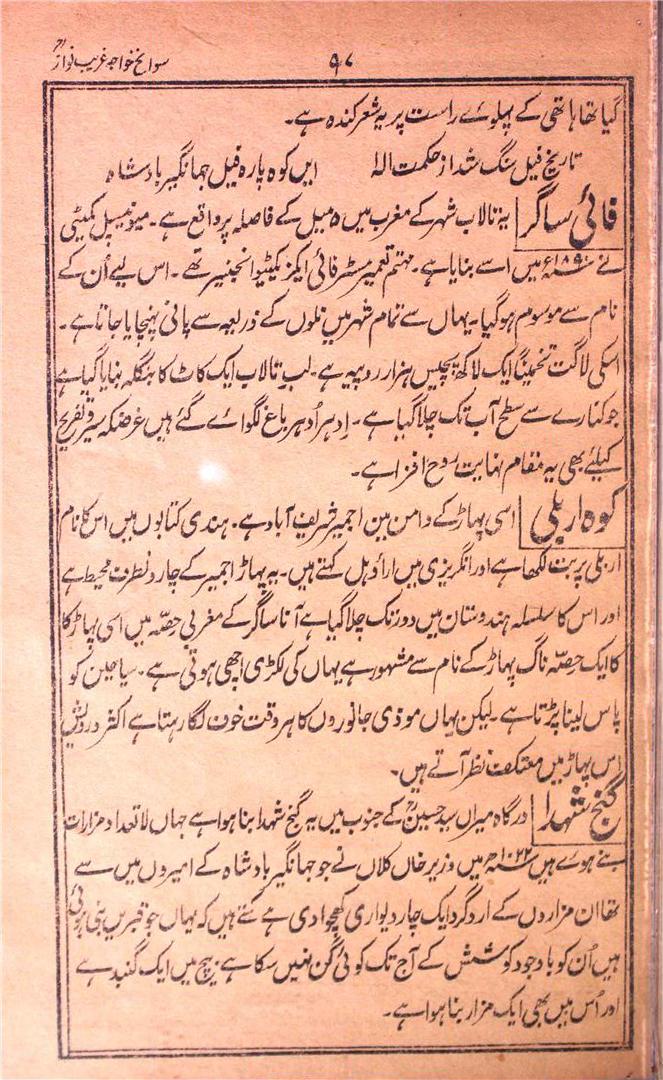 سوانح خواجہ غریب نواز
۹۷
گیا تھا ہاتھی کے پہلوئے راست پر یہ شعر کندہ ہے۔
تاریخ فیل سنگ شد از حکمت الہٰ ایں کوہ پارہ فیل جہانگیر بادشاہ
فائی ساگر یہ تالاب شہر کے مغرب میں ۵ میل کے فاصلہ پر واقع ہے۔ میونسپل کمیٹی
نے ۱۸۹۰ء میں اسے بنایا ہے۔ مہتمم تعمیر مسٹر فائی ایگزیکٹیو انجنیر تھے۔ اس لیے اُن کے
نام سے موسوم ہوگیا۔ یہاں سے تمام شہر میں نلوں کے ذریعہ سے پانی پہنچایا جاتا ہے۔
اسکی لاگت تخمیناً ایک لاکھ پچیس ہزار روپیہ ہے۔ لب تالاب ایک کاٹ کا بنگلہ بنایا گیا ہے
جو کنارے سے سطح آب تک چلا گیا ہے۔ اِدہر اُدہر باغ لگوائے گئے ہیں غرضکہ سیر و تفریح
کیلئے بھی یہ مقام نہایت روح افزا ہے۔
کوہ اربلی اسی پہاڑ کے دامن میں اجمیر شریف آباد ہے۔ ہندی کتابوں میں اس کا نام
اربلی پربت لکھا ہے اور انگریزی میں اراؤلی کہتے ہیں۔ یہ پہاڑ اجمیر کے چارونطرف محیط ہے
اور اس کا سلسلہ ہندوستان میں دور تک چلا گیا ہے آنا ساگر کے مغربی حصّہ میں اسی پہاڑ کا
کا ایک حصّہ ناگ پہاڑ کے نام سے مشہور ہے یہاں کی لکڑی اچھی ہوتی ہے۔ سیاحین کو
پاس لینا پڑتا ہے۔ لیکن یہاں موذی جانوروں کا ہر وقت خون لگا رہتا ہے اکثر درویش
اس پہاڑ میں معتکف نظر آتے ہیں۔
گنج شہدا درگاہ میراں سید حسینؒ کے جنوب میں یہ گنج شہدا بنا ہوا ہے جہاں لاتعداد مزارات
بنے ہوئے ہیں ۱۰۲۲ھ میں وزیر خاں کلاں نے جو جہانگیر بادشاہ کے امیروں میں سے
تھا ان مزاروں کے اردگرد ایک چار دیواری کھچوا دی ہے کہتے ہیں کہ یہاں جو قبریں بنی ہوئی
ہیں اُن کو باوجود کوشش کے آج تک کوئی گن نہیں سکا ہے بیچ میں ایک گنبد ہے
اور اُس میں بھی ایک مزار بنا ہوا ہے۔